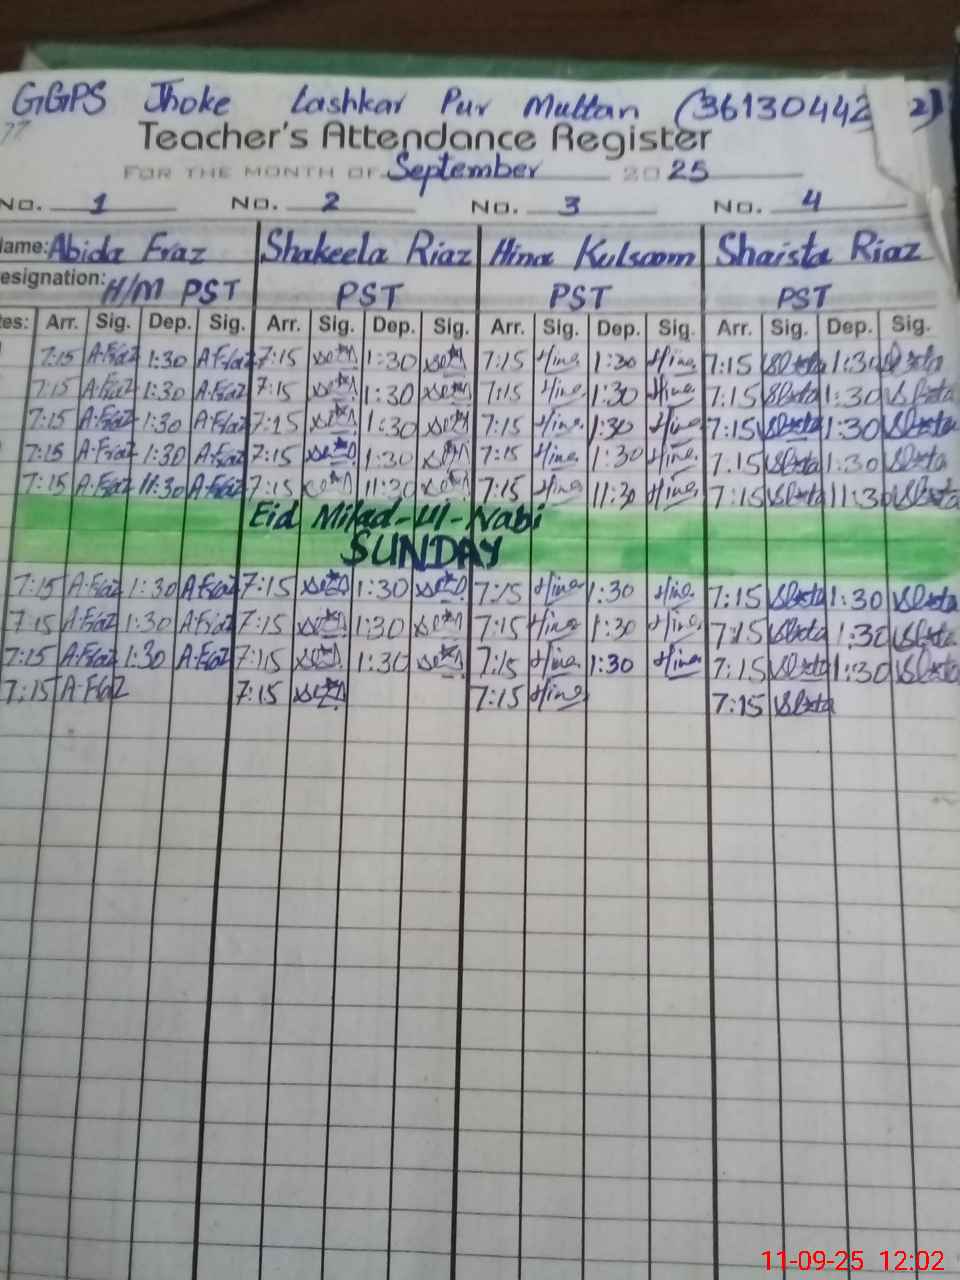 GGPS Jhoke Lashkar Pur Multan (36130442 2)
77
Teacher's Attendance Register
FOR THE MONTH OF September 2025
No. 1 No. 2 No. 3 No. 4
Name: Abida Fraz Shakeela Riaz Hina Kulsoom Shaista Riaz
esignation: H/M PST PST PST PST
tes: Arr. Sig. Dep. Sig. Arr. Sig. Dep. Sig. Arr. Sig. Dep. Sig. Arr. Sig. Dep. Sig.
7:15 A.Fraz 1:30 A.Fraz 7:15 1:30 7:15 Hina 1:30 Hina 7:15 1:30
7:15 A.Fraz 1:30 A.Fraz 7:15 1:30 7:15 Hina 1:30 Hina 7:15 1:30
7:15 A.Fraz 1:30 A.Fraz 7:15 1:30 7:15 Hina 1:30 Hina 7:15 1:30
7:15 A.Fraz 1:30 A.Fraz 7:15 1:30 7:15 Hina 1:30 Hina 7.15 1:30
7:15 A.Fraz 11:30 A.Fraz 7:15 11:30 7:15 Hina 11:30 Hina 7:15 11:30
Eid Milad-ul-Nabi
SUNDAY
7:15 A.Fraz 1:30 A.Fraz 7:15 1:30 7:15 Hina 1:30 Hina 7:15 1:30
7:15 A.Fraz 1:30 A.Fraz 7:15 1:30 7:15 Hina 1:30 Hina 7:15 1:30
7:15 A.Fraz 1:30 A.Fraz 7:15 1:30 7:15 Hina 1:30 Hina 7:15 1:30
7:15 A.Fraz 7:15 7:15 Hina 7:15
11-09-25 12:02